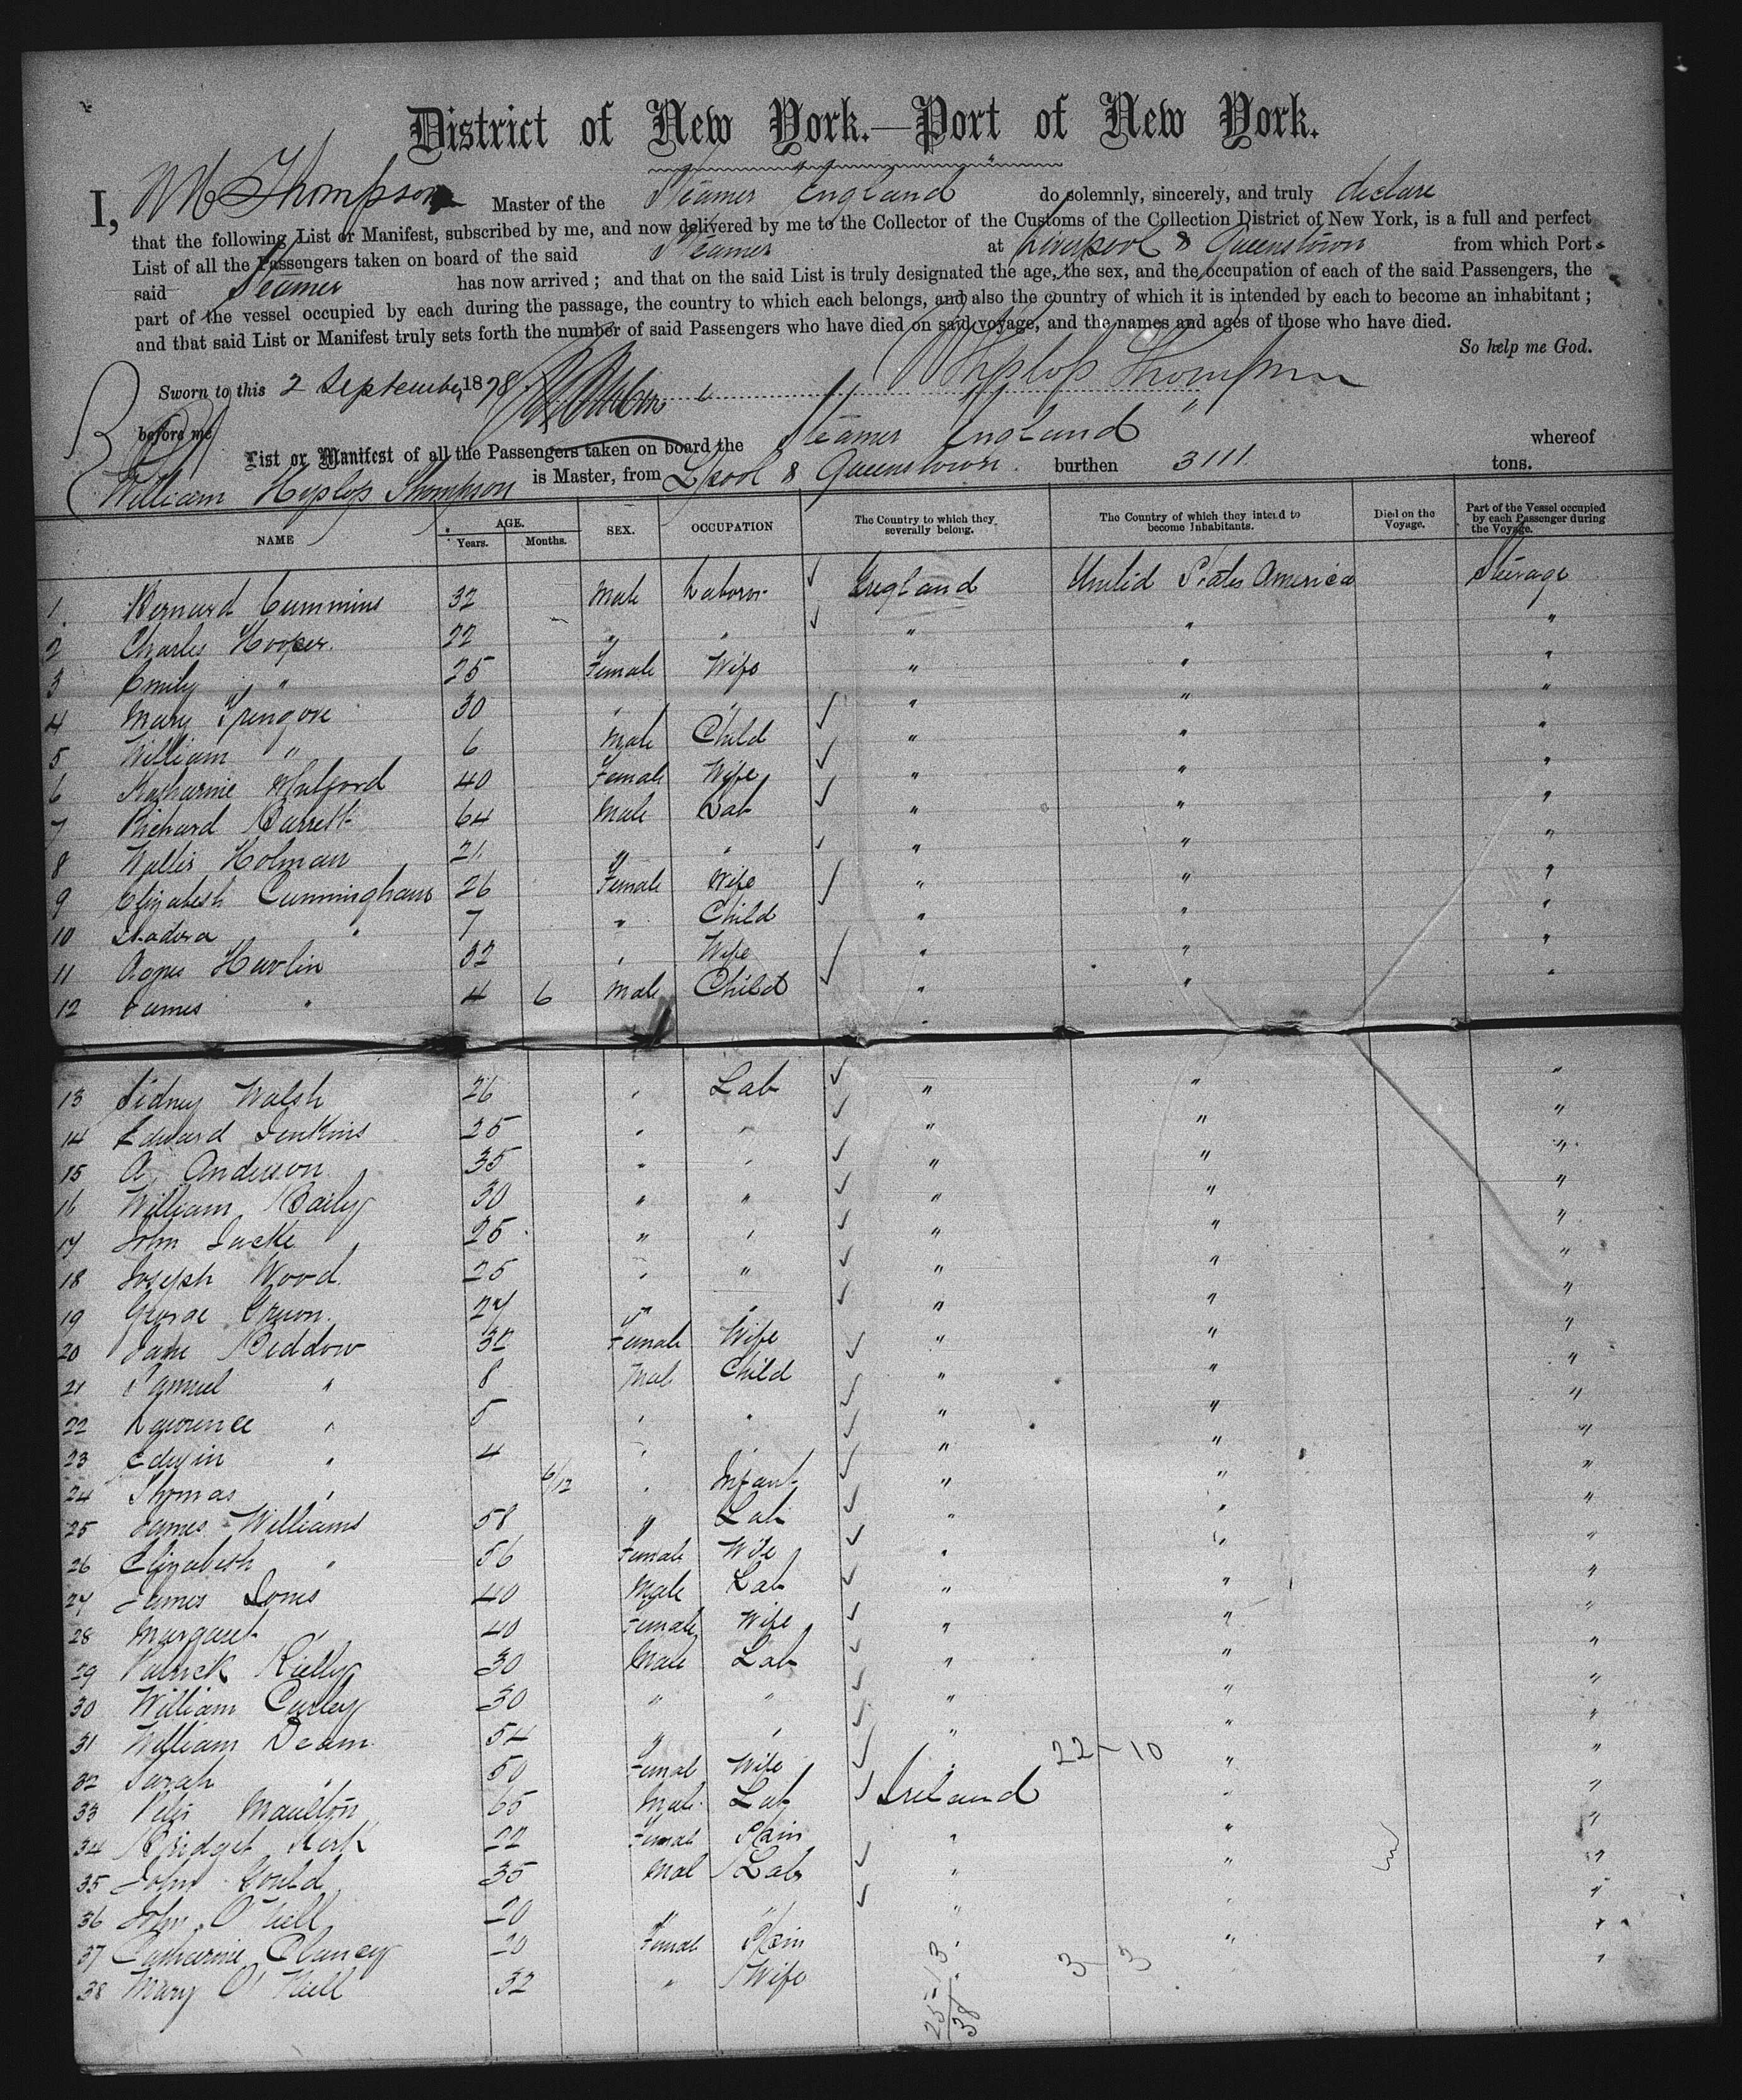 District of New York.—Port of New York.
I, W H Thompson Master of the Steamer England do solemnly, sincerely, and truly declare
that the following List or Manifest, subscribed by me, and now delivered by me to the Collector of the Customs of the Collection District of New York, is a full and perfect
List of all the Passengers taken on board of the said Steamer at Liverpool & Queenstown from which Port
said Steamer has now arrived; and that on the said List is truly designated the age, the sex, and the occupation of each of the said Passengers, the
part of the vessel occupied by each during the passage, the country to which each belongs, and also the country of which it is intended by each to become an inhabitant;
and that said List or Manifest truly sets forth the number of said Passengers who have died on said voyage, and the names and ages of those who have died.
So help me God.
Sworn to this 2 September, 1878 W Hyslop Thompson
before me
List or Manifest of all the Passengers taken on board the Steamer England " whereof
William Hyslop Thompson is Master, from L'pool & Queenstown. burthen 3111 tons.
NAME AGE. Years. Months. SEX. OCCUPATION The Country to which they severally belong. The Country of which they intend to become Inhabitants. Died on the Voyage. Part of the Vessel occupied by each Passenger during the Voyage.
1. Bernard Cummins 32 Male Laborer England United States America Steerage
2 Charles Hooper. 22 " " " " "
3 Emily " 25 Female Wife " " "
4 Mary 30 " " " " "
5 William " 6 Male Child " " "
6 Katharine Mulford 40 Female Wife " " "
7 Richard Barrett 64 Male Lab " " "
8 Walter Holman 21 " " " " "
9 Elizabeth Cunningham 26 Female Wife " " "
10 Isadora " 7 " Child " " "
11 Agnes Havlin 32 " Wife " " "
12 James " 4 6 Male Child " " "
13 Sidney Walsh 26 " Lab " " "
14 Edward Jenkins 25 " " " " "
15 A. Anderson 35 " " " " "
16 William Baily 30 " " " " "
17 John 25 " " " " "
18 Joseph Wood 25 " " " " "
19 George 27 " " " " "
20 Jane Beddow 32 Female Wife " " "
21 Samuel " 8 Male Child " " "
22 Lawrence " 5 " " " " "
23 Edwin " 4 " " " " "
24 Thomas " 6/12 " Infant " " "
25 James Williams 58 " Lab " " "
26 Elizabeth " 56 Female Wife " " "
27 James Jones 40 Male Lab " " "
28 Margaret " 40 Female Wife " " "
29 Patrick Rielly 30 Male Lab " " "
30 William Curley 30 " " " " "
31 William Deam 54 " " " " "
32 Sarah " 50 Female Wife " 22-10 " "
33 Peter Moulton 65 Male Lab Ireland " "
34 Bridget Kirk 22 Female Spin " " "
35 John Gould 35 Male Lab " " "
36 John O'Niell 20 " " " " "
37 Catharine Clancy 20 Female Spin " " "
38 Mary O'Niell 32 " Wife " 3 - 3 "
25-13
38